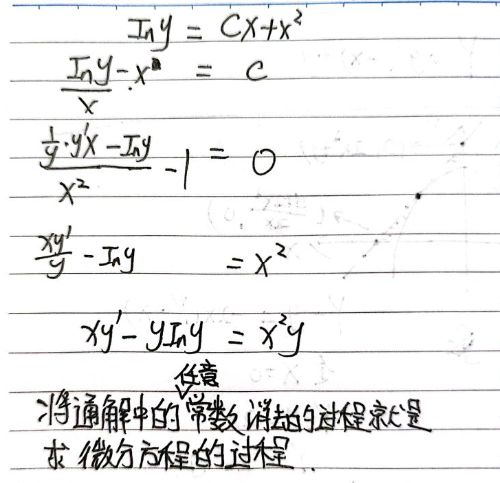 Iny = Cx+x²
Iny/x - x = C
(1/y·y'x - Iny)/x² - 1 = 0
xy'/y - Iny = x²
xy' - yIny = x²y
将通解中的任意常数消去的过程就是
求微分方程的过程.